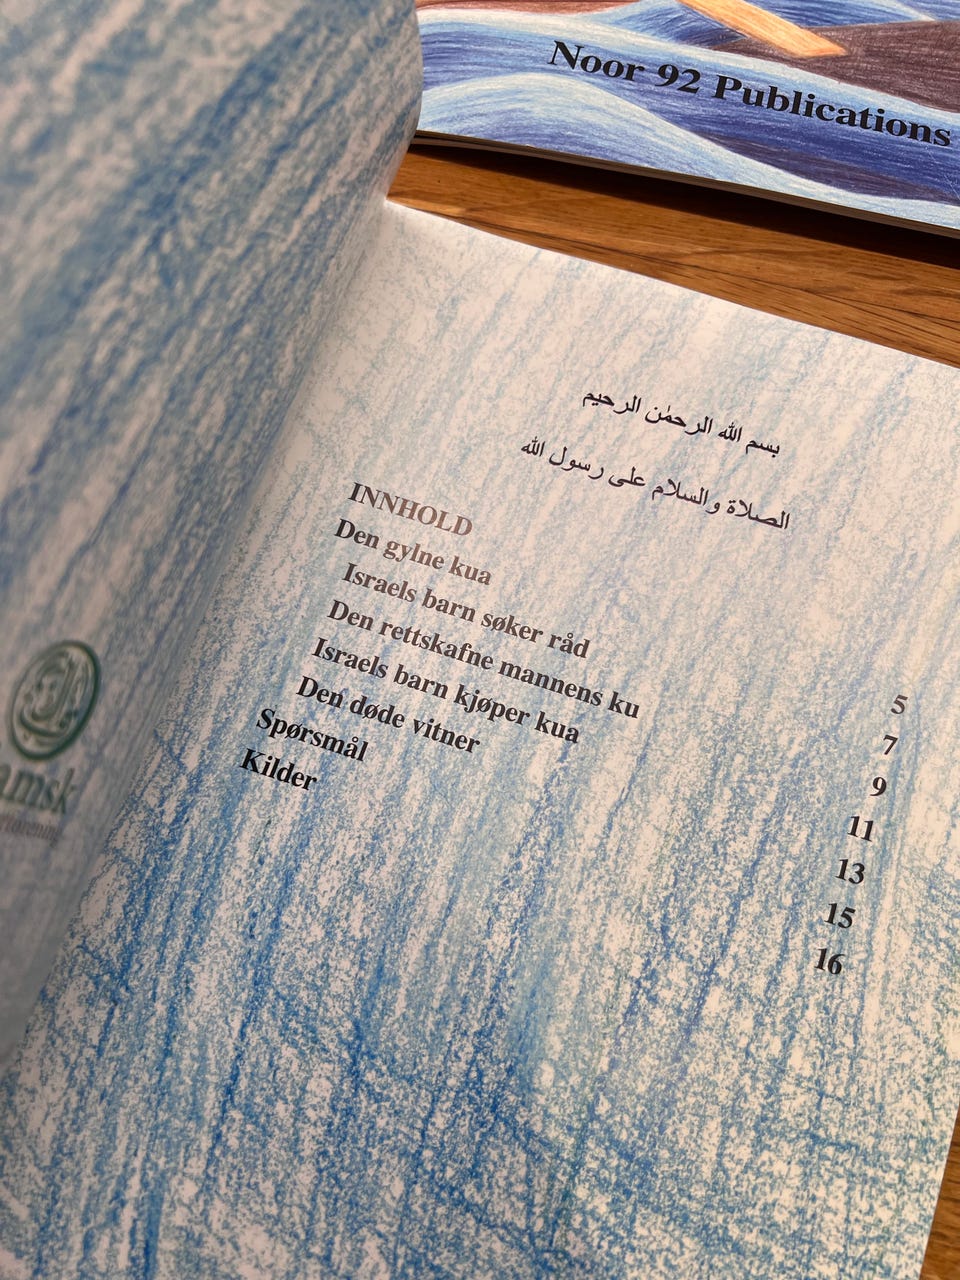 Noor 92 Publications
بسم الله الرحمٰن الرحيم
الصلاة والسلام على رسول الله
INNHOLD
Den gylne kua 5
Israels barn søker råd 7
Den rettskafne mannens ku 9
Israels barn kjøper kua 11
Den døde vitner 13
Spørsmål 15
Kilder 16